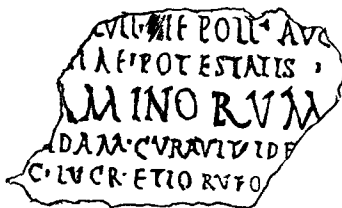 POLL AVG
POTESTATIS
MINORVM
DAM·CVRAVIT·IDE
C·LVCR·ETIO RVFO